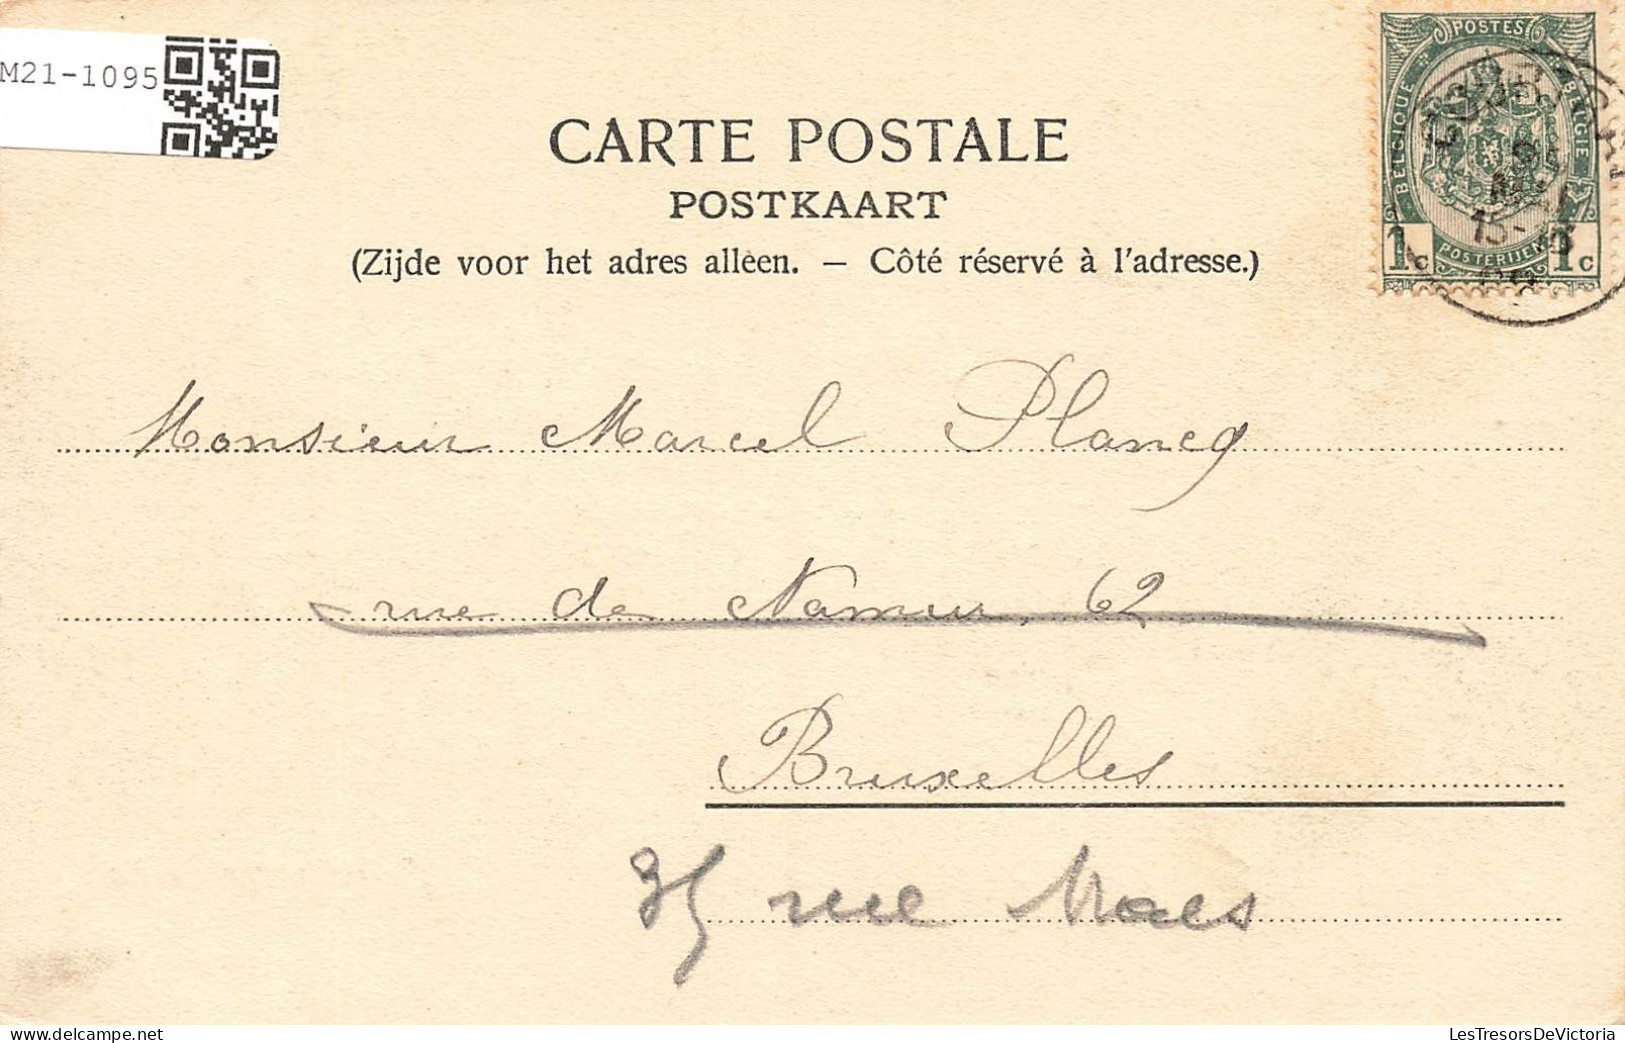 M21-1095
CARTE POSTALE
POSTKAART
(Zijde voor het adres alléen. – Côté réservé à l'adresse.)
POSTES
BELGIQUE
BELGIË
POSTERIJEN
1c 1c
15-
Monsieur Marcel Plancq
rue de Namur, 62
Bruxelles
35 rue Maes
LesTresorsDeVictoria.com